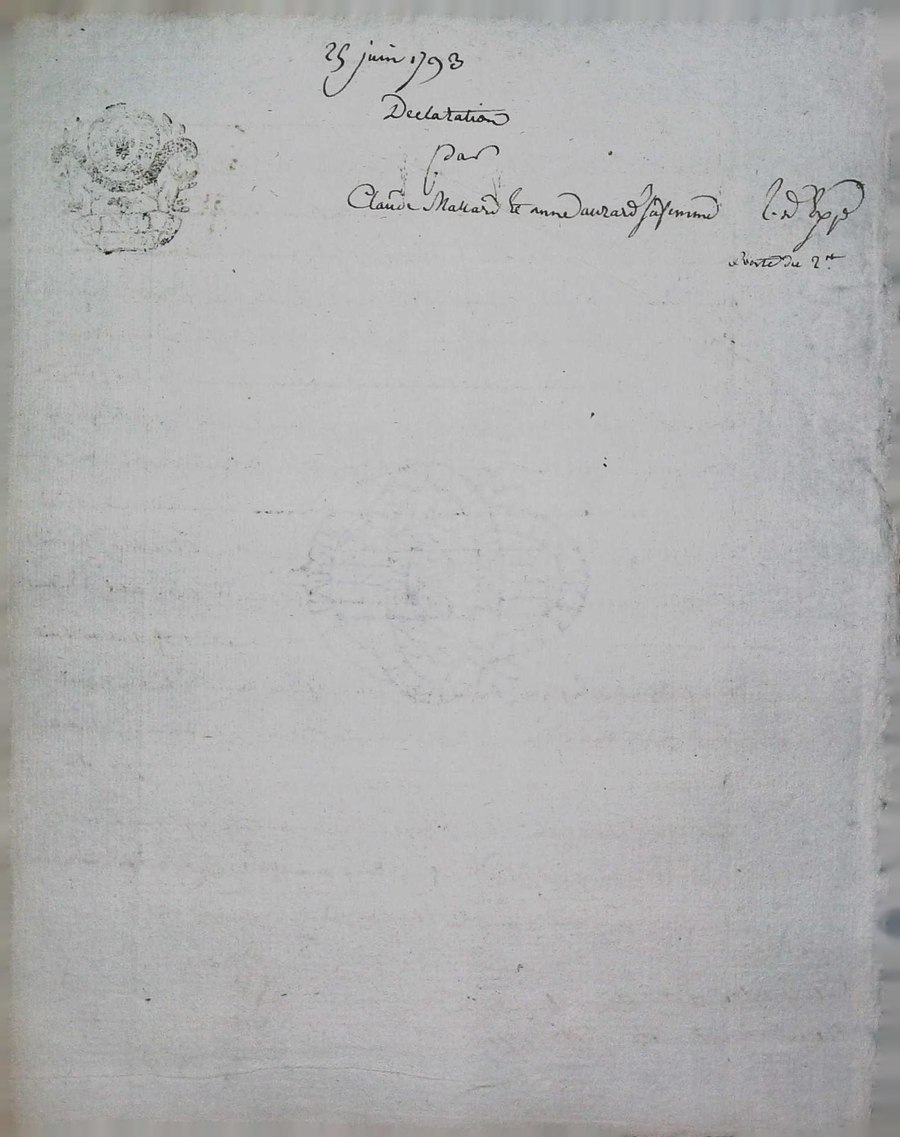 25 juin 1793
Declaration
par
Claude Mallard Et anne auzard sa femme
du 2